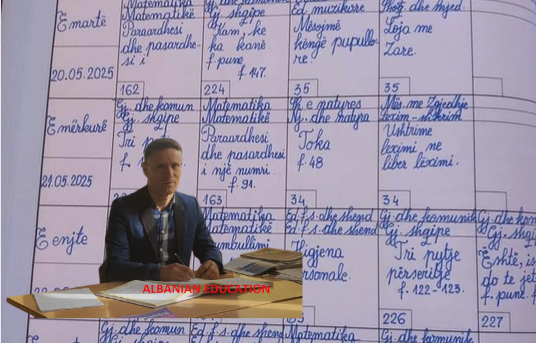 E martë
20.05.2025
Matematika
Matematikë
Paraardhësi
dhe pasardhë-
si i
162
Gj. shqipe
Kam, ke
ka kanë
f. pune
f. 147.
224
Ed. muzikore
Mësojmë
kënge pupullo-
re.
35
Loja me
Zare.
35
E mërkurë
21.05.2025
Gj. dhe komun
Gj. shqipe
Tri
f.
Matematika
Matematikë
Paraardhesi
dhe pasardhesi
i një numri.
f. 91.
163
Sh. e natyres
Nj. dhe natyra
Toka
f 48
34
Mës. me Zgjedhje
Lexim-shkrim
Ushtrime
leximi ne
liber leximi.
34
E enjte
Matematika
Matematikë
Ed. f. s. dhe shend
Ed. f. s. dhe shend
Higjena
Gj. dhe komunik
Gj. shqipe
Tri pytje
përseritje
f. 122-123.
226
Gj. dhe kom
Gj. shqip
Është, is
do te jet
f. pune f.
227
ALBANIAN EDUCATION
Gj. dhe komun
Gj. shqipe
Ed. f. s. dhe
Matematika
Gj. dhe komunik